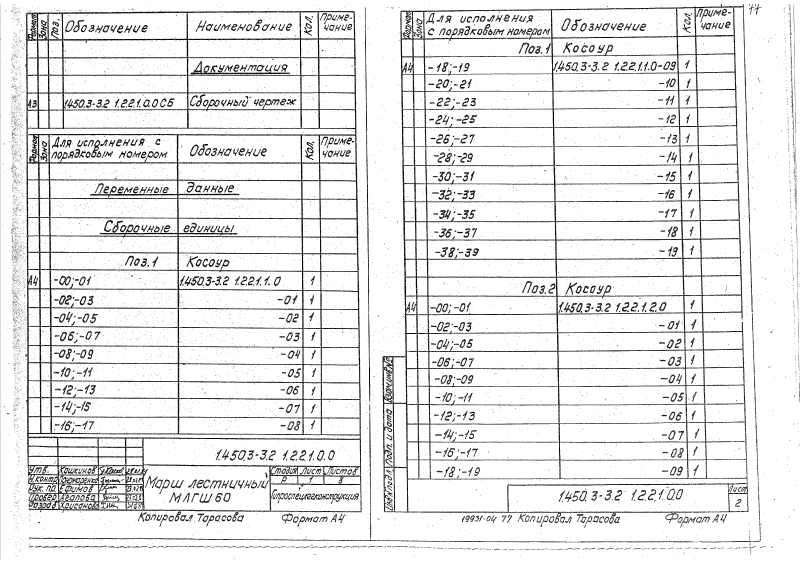 Формат Зона Поз. Обозначение Наименование Кол. Приме-
чание
Документация
А3 1.450.3-3.2 1.2.2.1.0.0 СБ Сборочный чертеж
Формат Зона Для исполнения с порядковым номером Обозначение Кол. Приме-
чание
Переменные данные
Сборочные единицы
Поз.1 Косоур
А4 -00;-01 1.450.3-3.2 1.2.2.1.1.0 1
-02;-03 -01 1
-04;-05 -02 1
-06;-07 -03 1
-08;-09 -04 1
-10;-11 -05 1
-12;-13 -06 1
-14;-15 -07 1
-16;-17 -08 1
1.450.3-3.2 1.2.2.1.0.0
Утв. Кошкинов
Н.контр. Пономаренко
Рук. пр. Ефимов
Провер. Агапова
Разраб. Хрисанова
Марш лестничный
МЛГШ 60
Стадия Лист Листов
Р 1 8
Гипроспецлегконструкция
Копировал Тарасова Формат А4
77
Формат Зона Для исполнения
с порядковым номером Обозначение Кол. Приме-
чание
Поз.1 Косоур
А4 -18;-19 1.450.3-3.2 1.2.2.1.1.0-09 1
-20;-21 -10 1
-22;-23 -11 1
-24;-25 -12 1
-26;-27 -13 1
-28;-29 -14 1
-30;-31 -15 1
-32;-33 -16 1
-34;-35 -17 1
-36;-37 -18 1
-38;-39 -19 1
Поз.2 Косоур
А4 -00;-01 1.450.3-3.2 1.2.2.1.2.0 1
-02;-03 -01 1
-04;-05 -02 1
-06;-07 -03 1
-08;-09 -04 1
-10;-11 -05 1
-12;-13 -06 1
-14;-15 -07 1
-16;-17 -08 1
-18;-19 -09 1
Инв.№подл. Подп. и дата Взам.инв.№
1.450.3-3.2 1.2.2.1.0.0
Лист
2
19931-04 77 Копировал Тарасова Формат А4